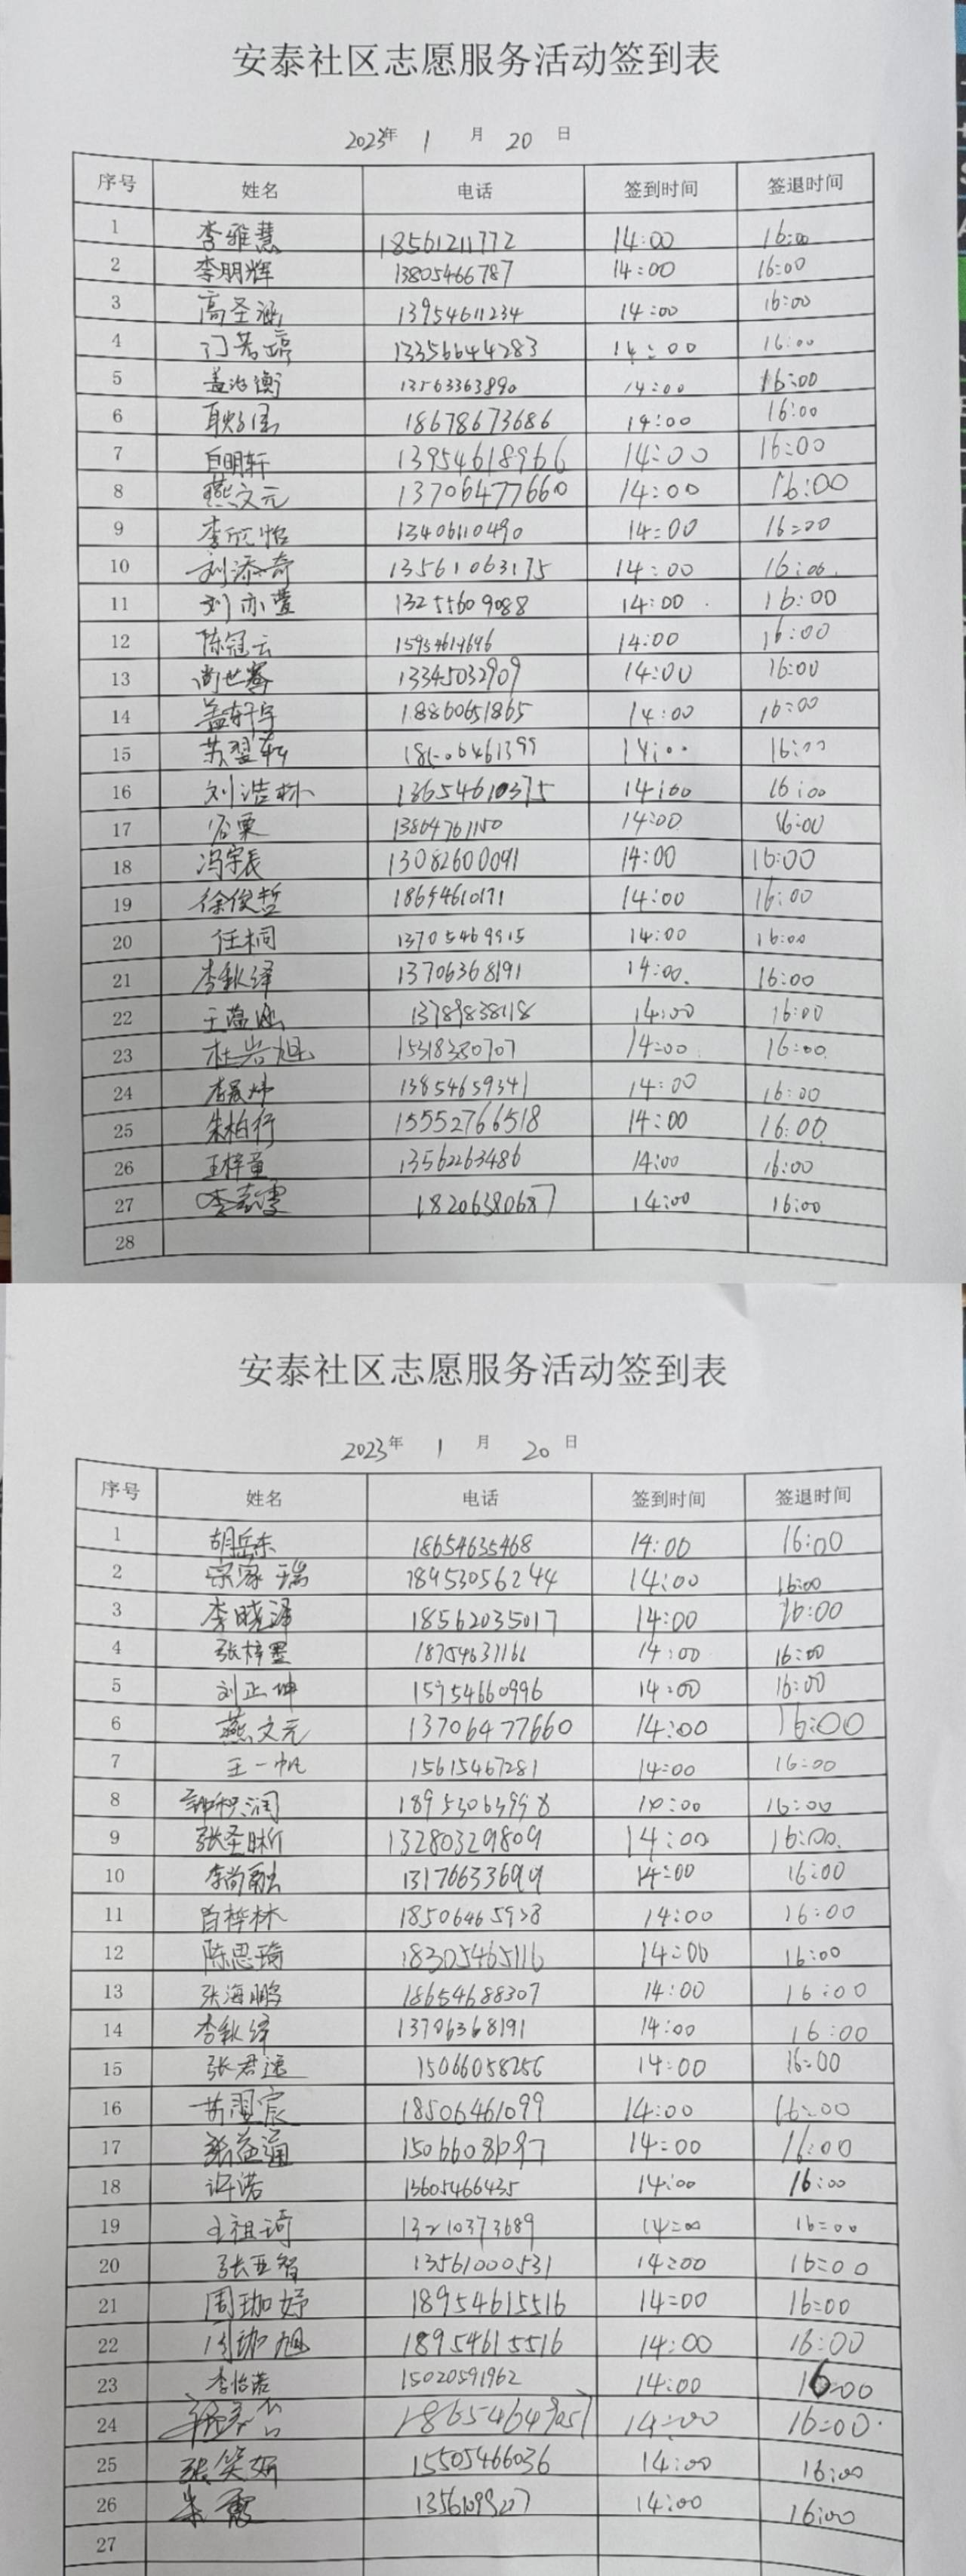 安泰社区志愿服务活动签到表
2023年 1 月 20 日
序号 姓名 电话 签到时间 签退时间
1 李雅慧 18561211772 14:00 16:00
2 李朋辉 13805466787 14:00 16:00
3 高圣涵 13954611234 14:00 16:00
4 13356644283 14:00 16:00
5 盖沿衡 13563363890 14:00 16:00
6 18678673686 14:00 16:00
7 吕明轩 13954618966 14:00 16:00
8 燕文元 13706477660 14:00 16:00
9 李欣怡 13406110490 14:00 16:00
10 刘添奇 13561063175 14:00 16:00
11 刘亦萱 13255609088 14:00 16:00
12 陈冠云 14:00 16:00
13 尚世骞 13345032909 14:00 16:00
14 盖轩宇 18860651865 14:00 16:00
15 14:00 16:00
16 刘浩林 13654610375 14:00 16:00
17 谷栗 13864761150 14:00 16:00
18 冯宇辰 13082600091 14:00 16:00
19 徐俊哲 18654610171 14:00 16:00
20 任桐 13705469915 14:00 16:00
21 李秋绎 13706368191 14:00 16:00
22 14:00 16:00
23 杜岩旭 15318380707 14:00 16:00
24 李晨炜 13854659341 14:00 16:00
25 朱柏行 15552766518 14:00 16:00
26 王梓童 13562263486 14:00 16:00
27 李嘉雯 18206380687 14:00 16:00
28
安泰社区志愿服务活动签到表
2023年 1 月 20 日
序号 姓名 电话 签到时间 签退时间
1 胡岳东 18654635468 14:00 16:00
2 宗家瑞 18953056244 14:00 16:00
3 李晓泽 18562035017 14:00 16:00
4 张梓墨 18754631161 14:00 16:00
5 刘正坤 15954660996 14:00 16:00
6 燕文元 13706477660 14:00 16:00
7 王一帆 15615467281 14:00 16:00
8 18953063998 14:00 16:00
9 张圣昕 13280329809 14:00 16:00
10 李尚融 13176633699 14:00 16:00
11 肖梓林 18506465938 14:00 16:00
12 陈思琦 18305465116 14:00 16:00
13 张海鹏 18654688307 14:00 16:00
14 李秋绎 13706368191 14:00 16:00
15 张君 15066058256 14:00 16:00
16 苏翌宸 18506461099 14:00 16:00
17 张益 14:00 16:00
18 许诺 13605466435 14:00 16:00
19 王祖琦 13210373689 14:00 16:00
20 张亚智 13561000531 14:00 16:00
21 周珈妤 18954615516 14:00 16:00
22 周珈旭 18954615516 14:00 16:00
23 李怡诺 15020591962 14:00 16:00
24 14:00 16:00
25 张笑妍 15505466036 14:00 16:00
26 朱霞 14:00 16:00
27